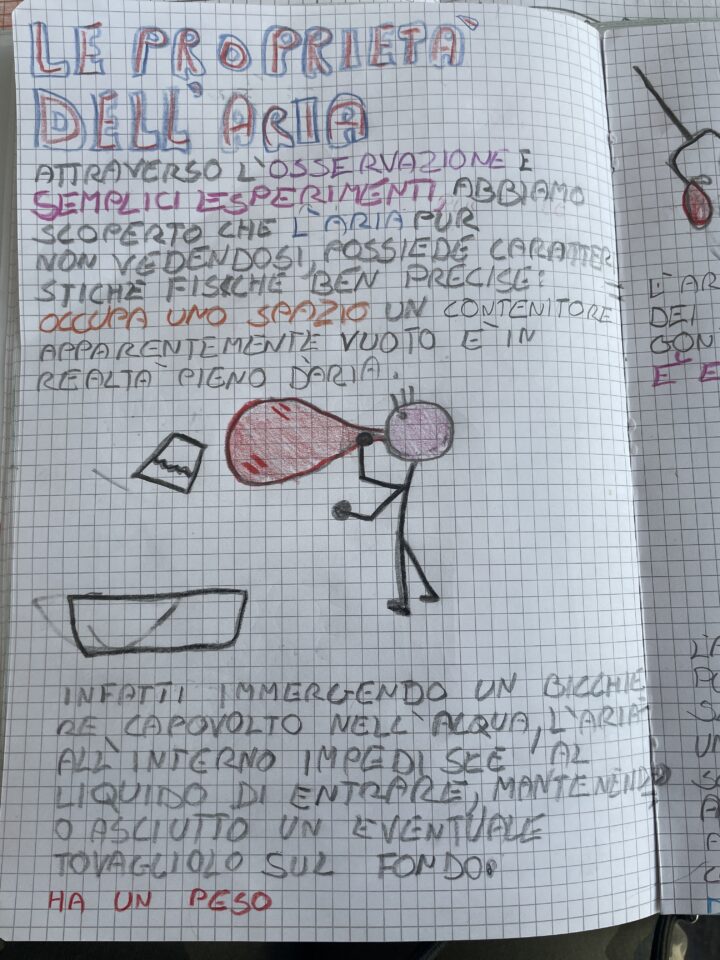 LE PROPRIETA'
DELL'ARIA
ATTRAVERSO L'OSSERVAZIONE E
SEMPLICI ESPERIMENTI, ABBIAMO
SCOPERTO CHE L'ARIA PUR
NON VEDENDOSI, POSSIEDE CARATTER
STICHE FISICHE BEN PRECISE:
OCCUPA UNO SPAZIO UN CONTENITORE
APPARENTEMENTE VUOTO E' IN
REALTA' PIENO D'ARIA.
INFATTI IMMERGENDO UN BICCHIE
RE CAPOVOLTO NELL'ACQUA, L'ARIA
ALL'INTERNO IMPEDISCE AL
LIQUIDO DI ENTRARE, MANTENEND
O ASCIUTTO UN EVENTUALE
TOVAGLIOLO SUL FONDO.
HA UN PESO
E' AR
DEI
GON
E' E